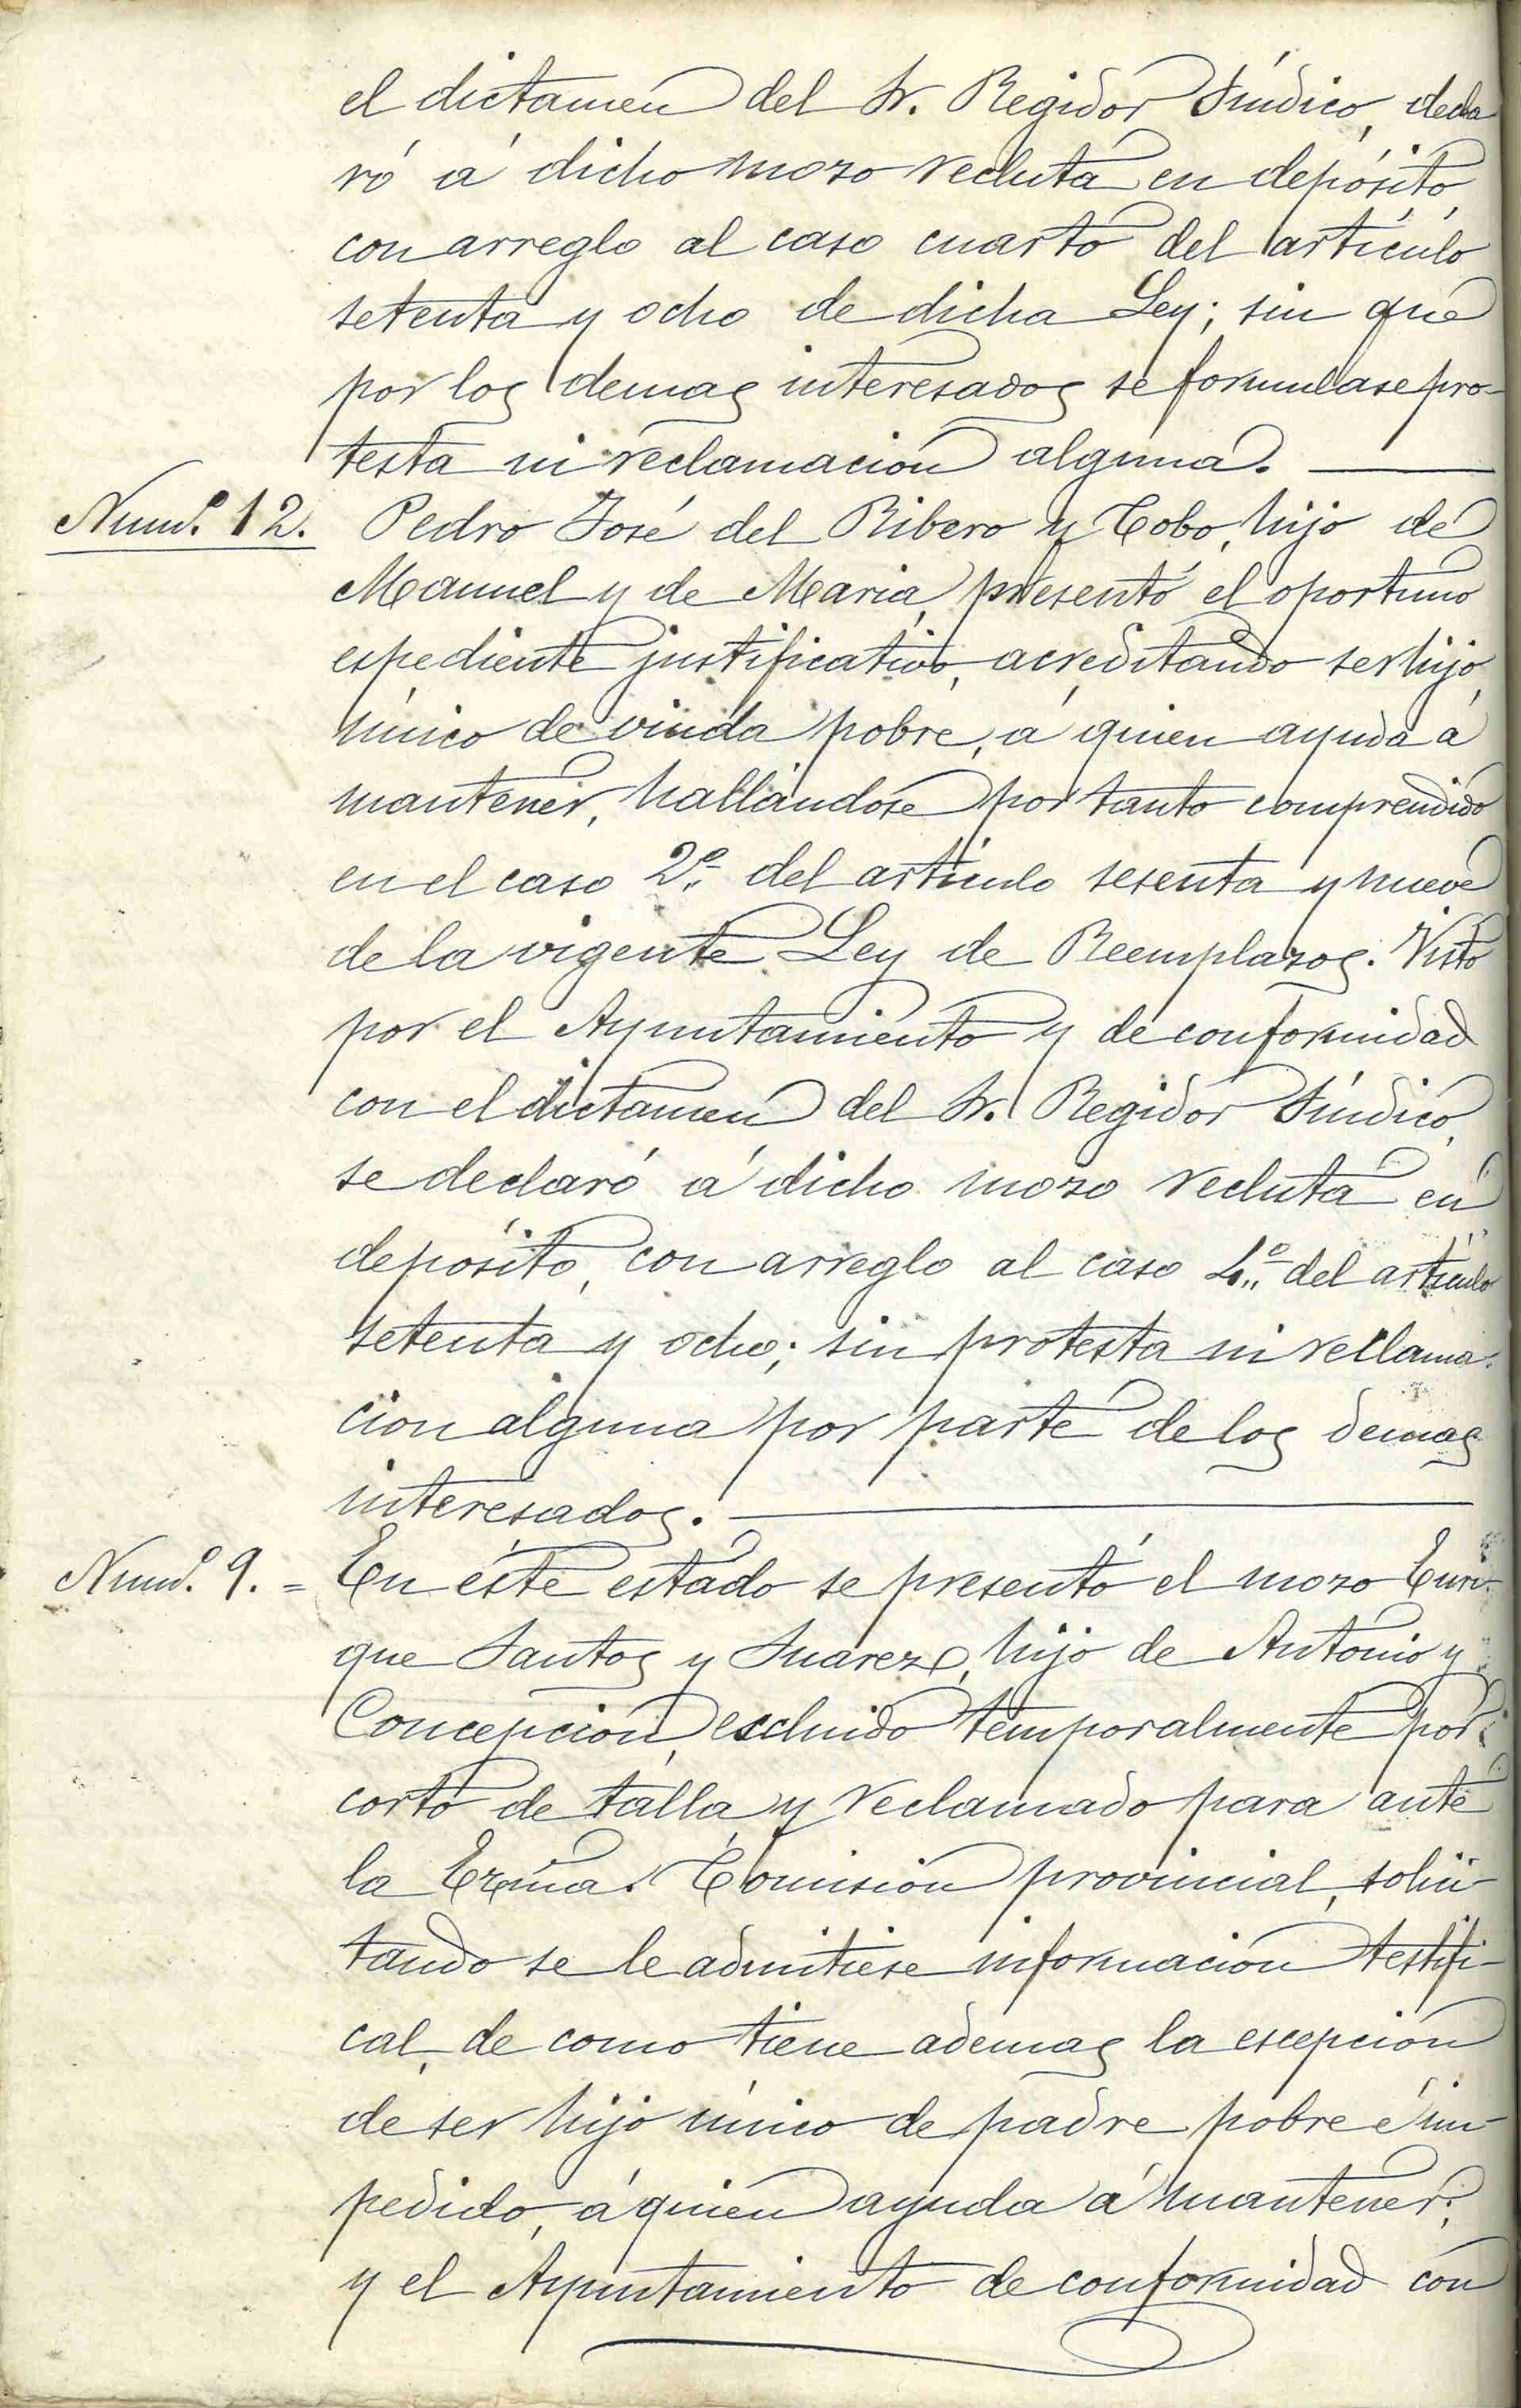 el dictamen del Sr. Regidor Síndico, decla
ró á dicho mozo recluta en depósito,
con arreglo al caso cuarto del artículo
setenta y ocho de dicha Ley; sin que
por los demas interesados se formulase pro-
testa ni reclamacion alguna.
Numº. 12. Pedro José del Ribero y Cobo, hijo de
Manuel y de Maria, presentó el oportuno
espediente justificativo, acreditando ser hijo
único de viuda pobre, á quien ayuda á
mantener, hallándose por tanto comprendido
en el caso 2º del artículo sesenta y nueve
de la vigente Ley de Reemplazos. Visto
por el Ayuntamiento y de conformidad
con el dictamen del Sr. Regidor Síndico,
se declaró á dicho mozo recluta en
depósito, con arreglo al caso 4º del artículo
setenta y ocho; sin protesta ni reclama-
cion alguna por parte de los demas
interesados.
Numº. 9. = En éste estado se presentó el mozo Enri-
que Santos y Suarez, hijo de Antonio y
Concepcion, escluido temporalmente por
corto de talla, y reclamado para ante
la Excma. Comision provincial, solici-
tando se le admitiese informacion testifi-
cal, de como tiene ademas la escepcion
de ser hijo único de padre pobre é im-
pedido, á quien ayuda á mantener;
y el Ayuntamiento de conformidad con